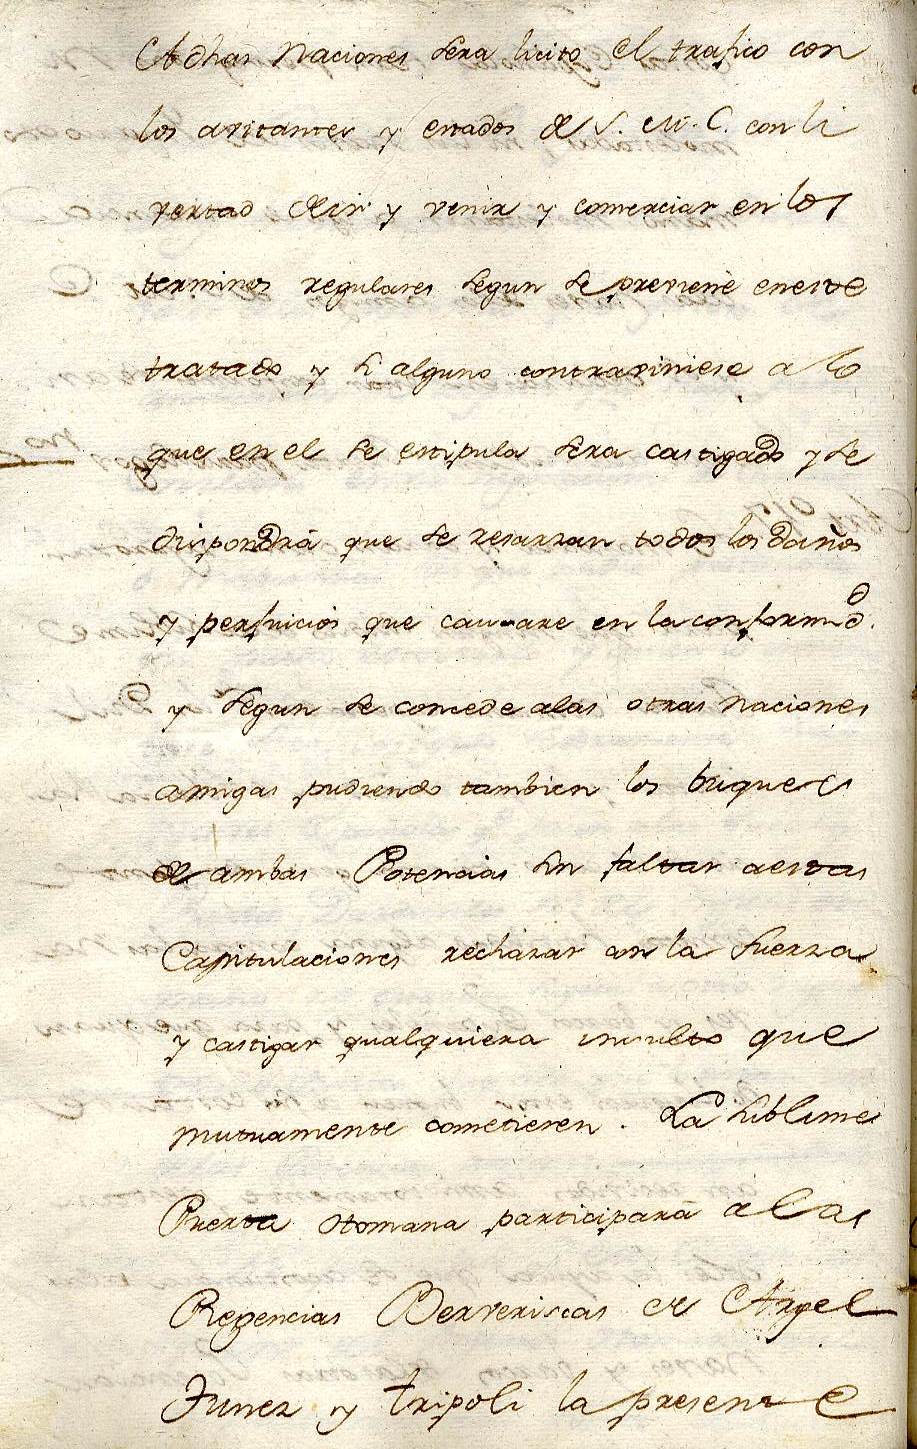 A dhas Naciones sera licito el trafico con
los avitantes y estados de S. M. C. con li
vertad de ir y venir y comerciar en los
terminos regulares segun se previene en este
tratado y si alguno contraviniese a lo
que en el se estipula sera castigado y se
dispondrá que se resarzan todos los daños
y perjuicios que causare en la conformd.
y segun se concede a las otras Naciones
amigas pudiendo tambien los buques
de ambas Potencias sin faltar a estas
Capitulaciones rechazar con la fuerza
y castigar qualquiera insulto que
mutuamente cometieren. La Sublime
Puerta Otomana participará a las
Regencias Berveriscas de Argel
Tunez y Tripoli la presente